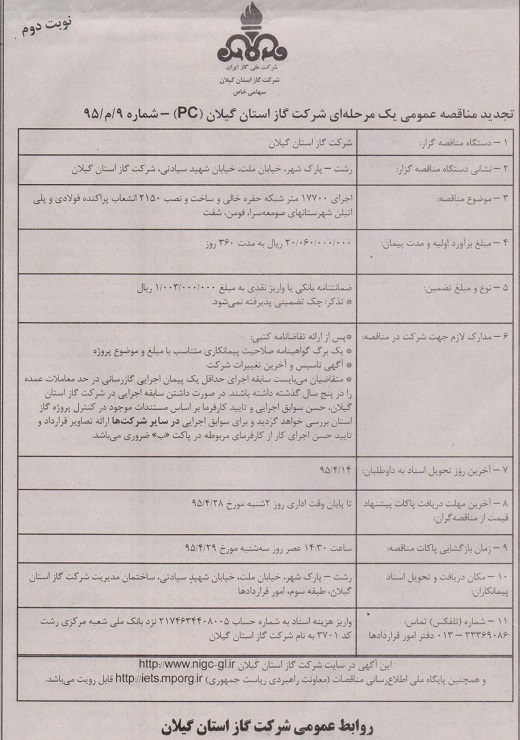 نوبت دوم
شرکت ملی گاز ایران
شرکت گاز استان گیلان
سهامی خاص
تجدید مناقصه عمومی یک مرحله‌ای شرکت گاز استان گیلان (PC) – شماره ۹/م/۹۵
۱ – دستگاه مناقصه گزار:
شرکت گاز استان گیلان
۲ – نشانی دستگاه مناقصه گزار:
رشت – پارک شهر، خیابان ملت، خیابان شهید سیادتی، شرکت گاز استان گیلان
۳ – موضوع مناقصه:
اجرای ۱۷۷۰۰ متر شبکه حفره خالی و ساخت و نصب ۲۱۵۰ انشعاب پراکنده فولادی و پلی
اتیلن شهرستانهای صومعه‌سرا، فومن، شفت
۴ – مبلغ برآورد اولیه و مدت پیمان:
۲۰/۰۶۰/۰۰۰/۰۰۰ ریال به مدت ۳۶۰ روز
۵ – نوع و مبلغ تضمین:
ضمانتنامه بانکی یا واریز نقدی به مبلغ ۱/۰۰۳/۰۰۰/۰۰۰ ریال
* تذکر: چک تضمینی پذیرفته نمی‌شود.
۶ – مدارک لازم جهت شرکت در مناقصه:
*پس از ارائه تقاضانامه کتبی:
* یک برگ گواهینامه صلاحیت پیمانکاری متناسب با مبلغ و موضوع پروژه
* آگهی تاسیس و آخرین تغییرات شرکت
* متقاضیان می‌بایست سابقه اجرای حداقل یک پیمان اجرایی گازرسانی در حد معاملات عمده
را در پنج سال گذشته داشته باشند. در صورت داشتن سابقه اجرایی در شرکت گاز استان
گیلان، حسن سوابق اجرایی و تایید کارفرما بر اساس مستندات موجود در کنترل پروژه گاز
استان بررسی خواهد گردید و برای سوابق اجرایی در سایر شرکت‌ها ارائه تصاویر قرارداد و
تایید حسن اجرای کار از کارفرمای مربوطه در پاکت «ب» ضروری می‌باشد.
۷ – آخرین روز تحویل اسناد به داوطلبان:
۹۵/۴/۱۴
۸ – آخرین مهلت دریافت پاکات پیشنهاد
قیمت از مناقصه‌گران:
تا پایان وقت اداری روز ۲شنبه مورخ ۹۵/۴/۲۸
۹ – زمان بازگشایی پاکات مناقصه:
ساعت ۱۴:۳۰ عصر روز سه‌شنبه مورخ ۹۵/۴/۲۹
۱۰ – مکان دریافت و تحویل اسناد
پیمانکاران:
رشت – پارک شهر، خیابان ملت، خیابان شهید سیادتی، ساختمان مدیریت شرکت گاز استان
گیلان، طبقه سوم، امور قراردادها
۱۱ – شماره (تلفکس) تماس:
۳۳۳۶۹۰۸۶ – ۰۱۳ دفتر امور قراردادها
واریز هزینه اسناد به شماره حساب ۲۱۷۴۶۳۴۴۰۸۰۰۵ نزد بانک ملی شعبه مرکزی رشت
کد ۳۷۰۱ به نام شرکت گاز استان گیلان
این آگهی در سایت شرکت گاز استان گیلان http://www.nigc-gl.ir
و همچنین پایگاه ملی اطلاع‌رسانی مناقصات (معاونت راهبردی ریاست جمهوری) http://iets.mporg.ir قابل رویت می‌باشد.
روابط عمومی شرکت گاز استان گیلان